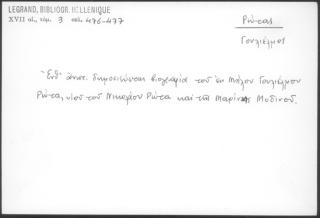 LEGRAND, BIBLIOGR. HELLENIQUE
XVII αἰ., τόμ. 3 σελ. 476-477
Ρώτας
Γουλιέλμος
Ἐνθ' ἀνωτ. δημοσιεύεται βιογραφία τοῦ ἐκ Μήλου Γουλιέλμου
Ρώτα, υἱοῦ τοῦ Νικολάου Ρώτα καὶ τῆς Μαρίνας Μοδινοῦ.